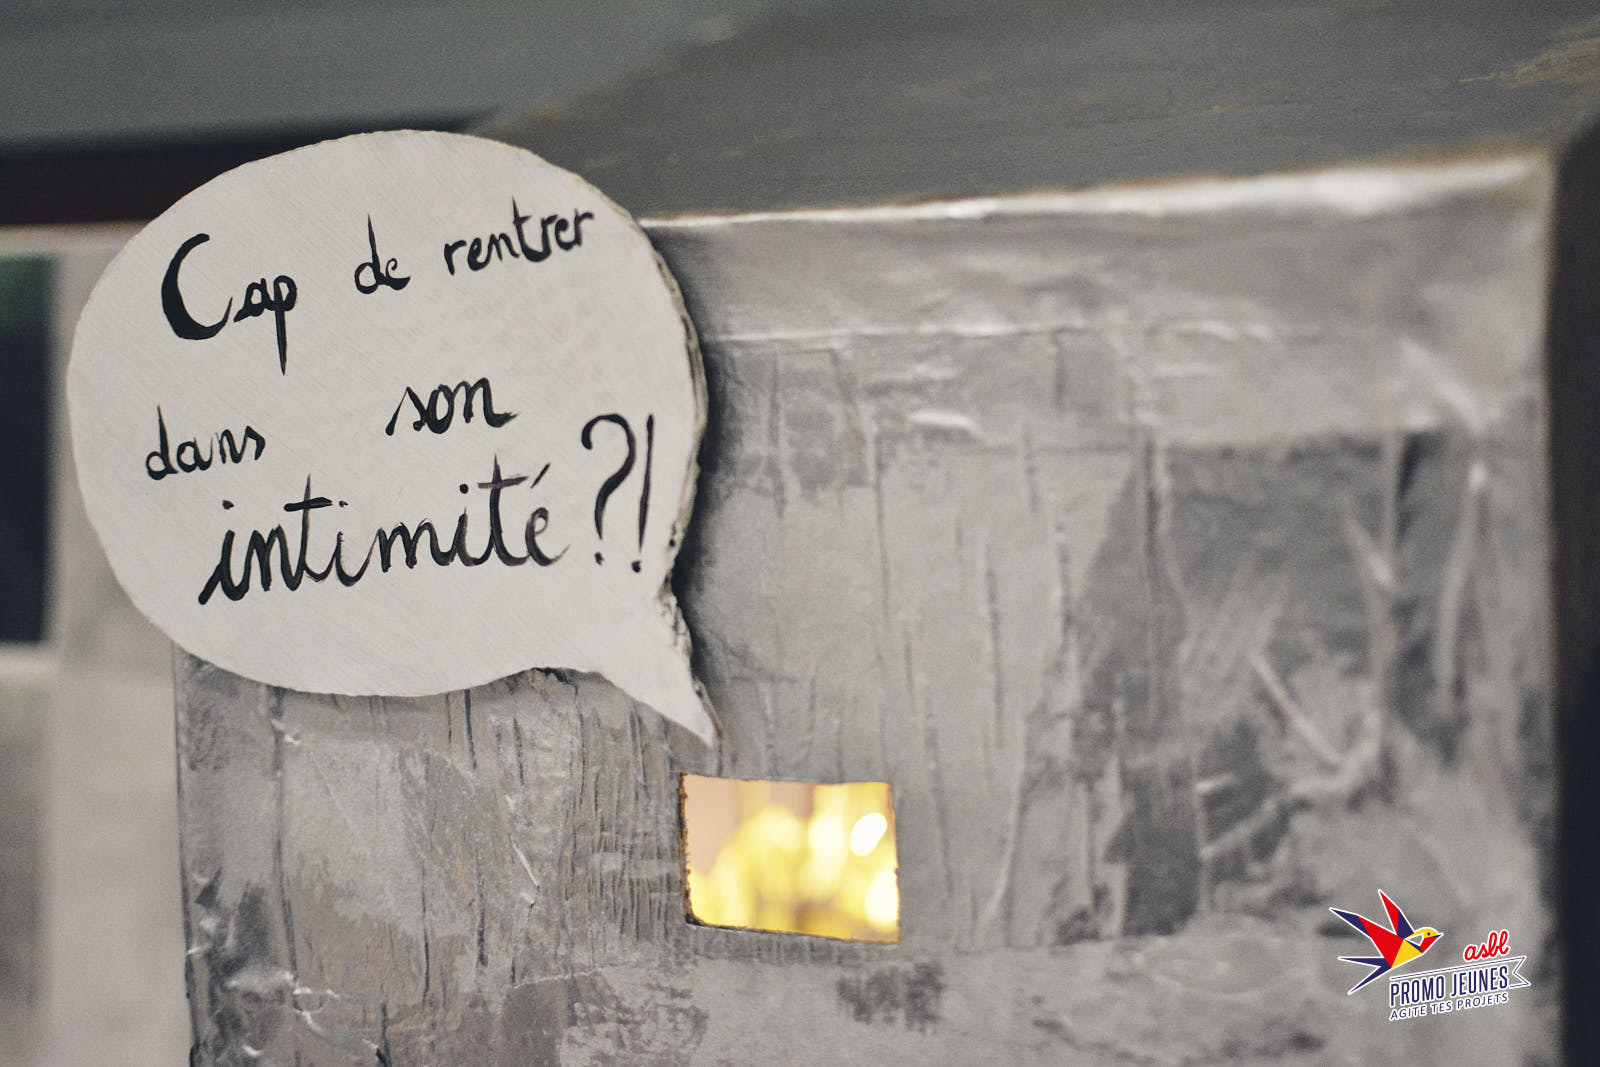 Cap de rentrer
dans son
intimité ?!
asbl
PROMO JEUNES
AGITE TES PROJETS